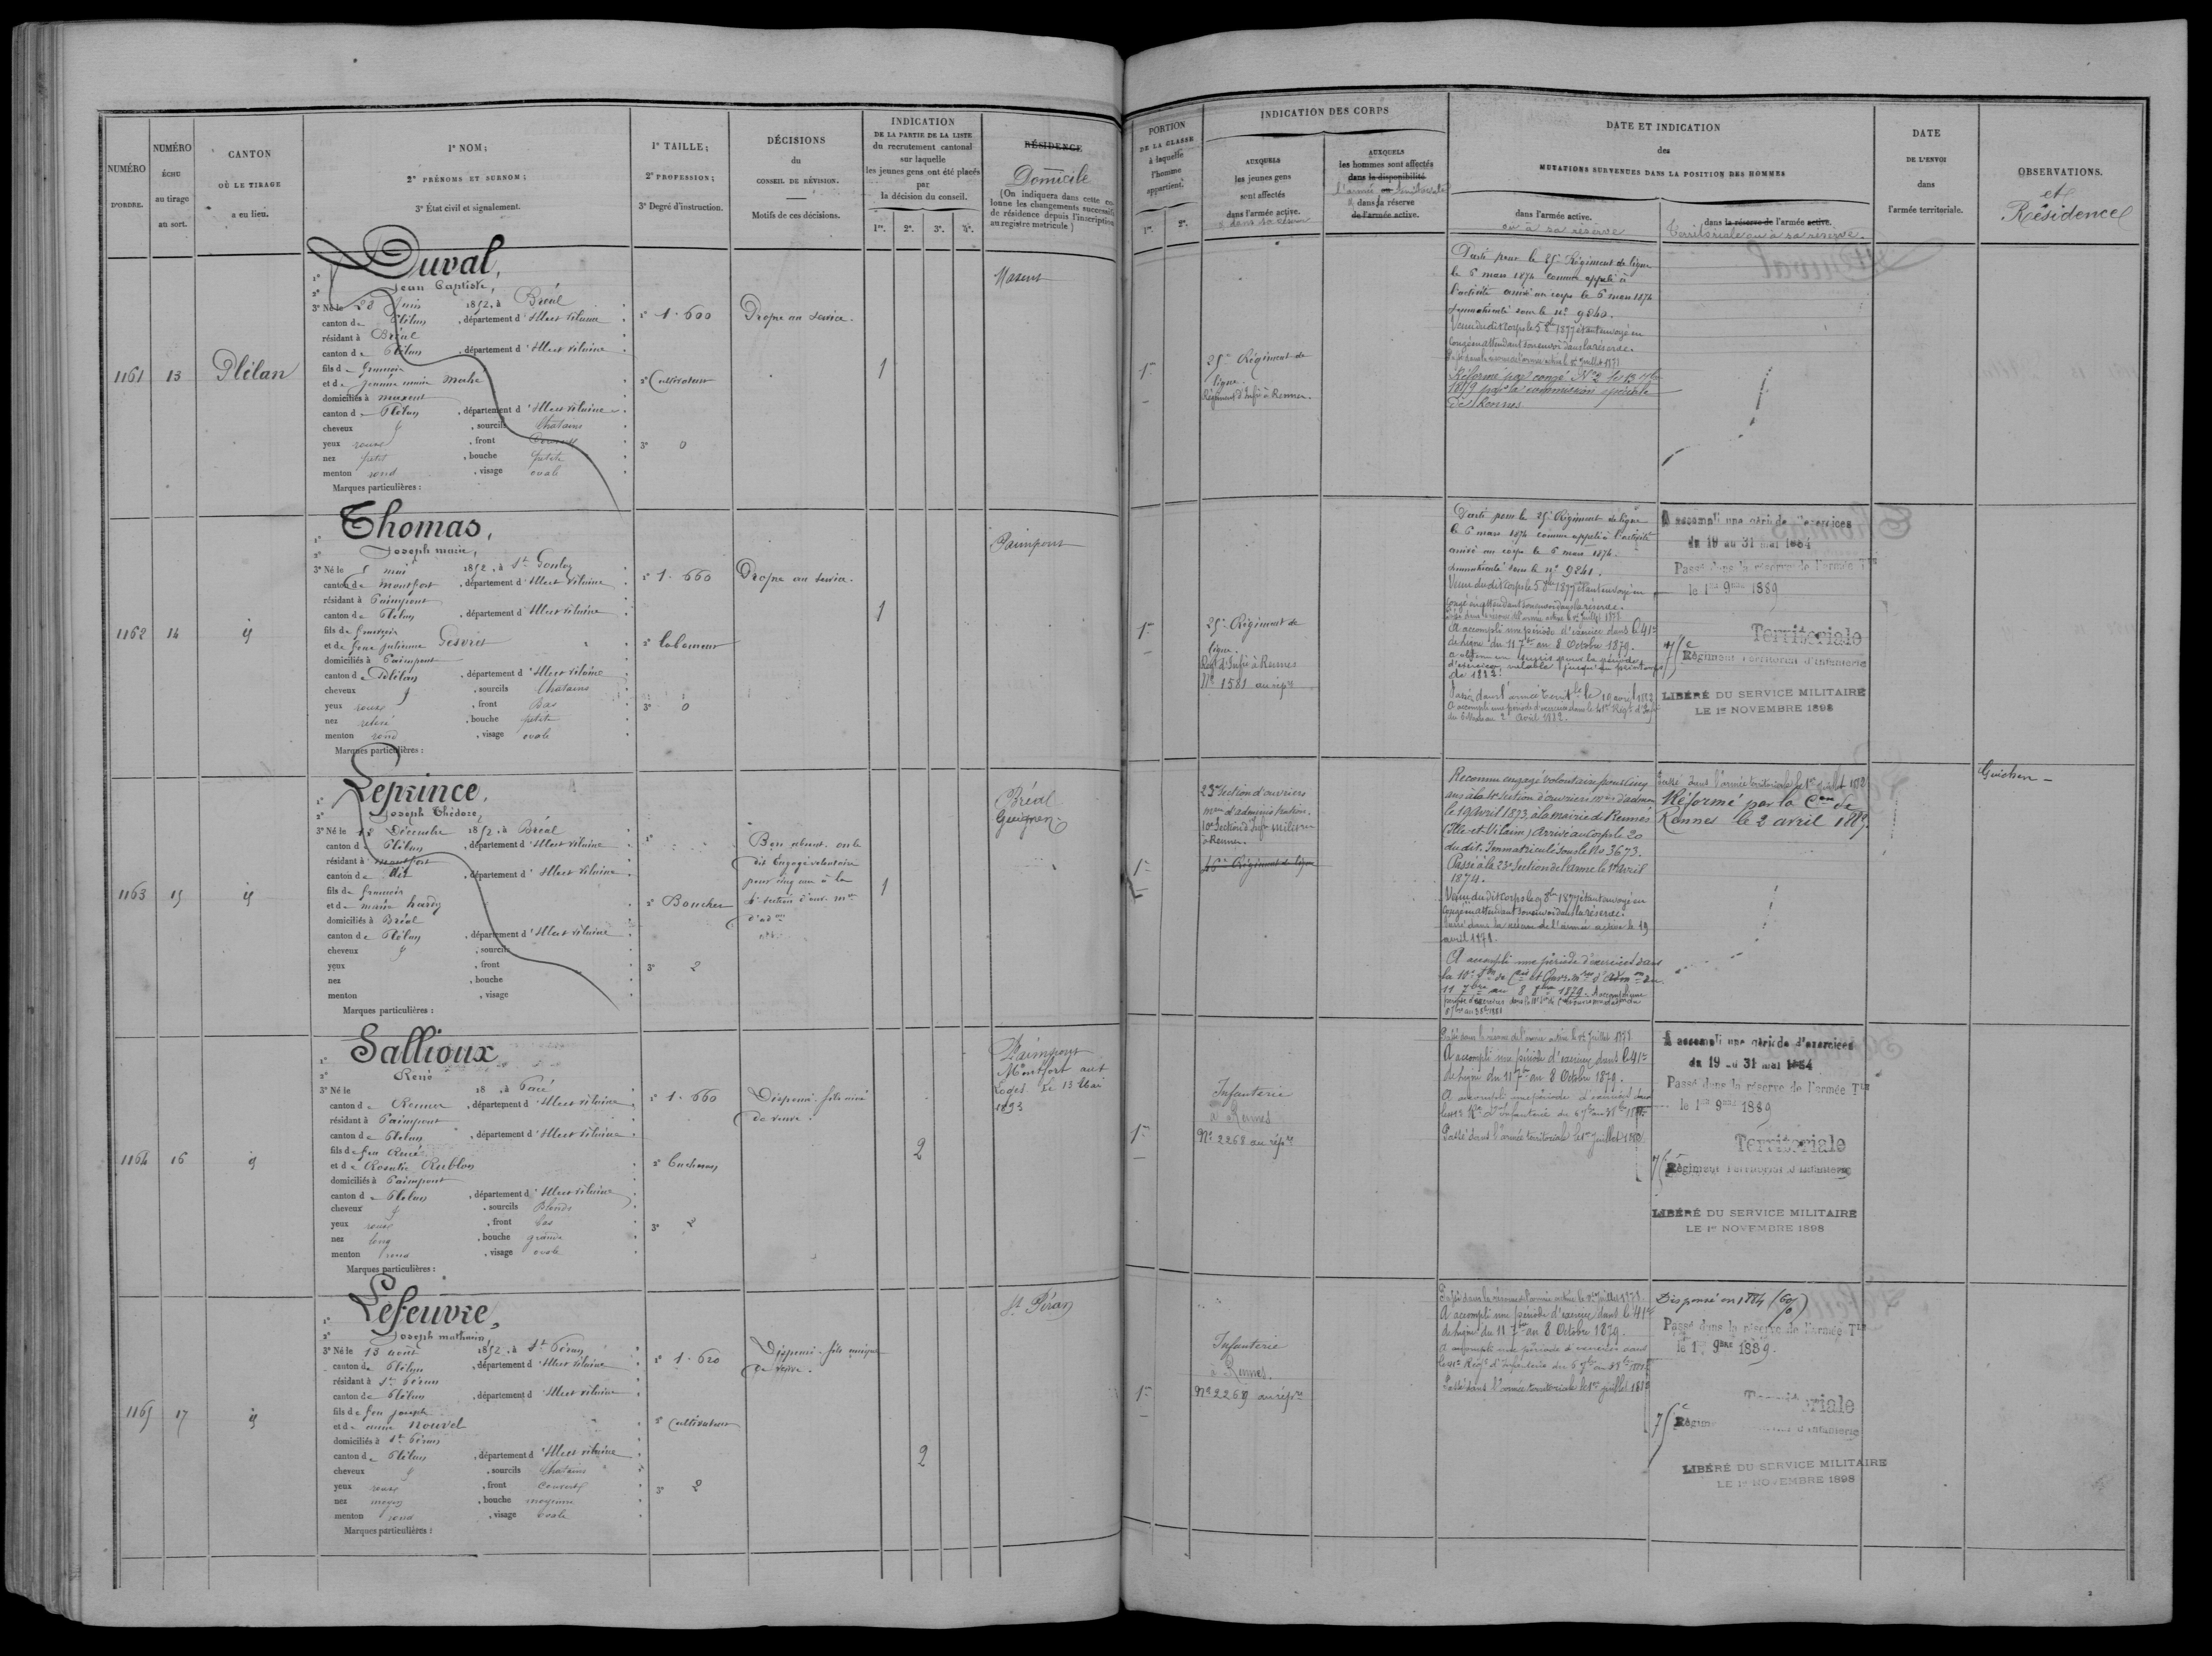 NUMÉRO
D'ORDRE.
NUMÉRO
ÉCHU
au tirage
au sort.
CANTON
OÙ LE TIRAGE
a eu lieu.
1° NOM;
2° PRÉNOMS ET SURNOM;
3° État civil et signalement.
1° TAILLE;
2° PROFESSION;
3° Degré d'instruction.
DÉCISIONS
du
CONSEIL DE RÉVISION.
Motifs de ces décisions.
INDICATION
DE LA PARTIE DE LA LISTE
du recrutement cantonal
sur laquelle
les jeunes gens ont été placés
par
la décision du conseil.
1re. 2e. 3e. 4e.
RÉSIDENCE
Domicile
(On indiquera dans cette colonne les changements successifs
de résidence depuis l'inscription
au registre matricule)
PORTION
DE LA CLASSE
à laquelle
l'homme
appartient.
1re. 2e.
INDICATION DES CORPS
AUXQUELS
les jeunes gens
sont affectés
dans l'armée active.
AUXQUELS
les hommes sont affectés
dans la disponibilité
dans la réserve
de l'armée active.
DATE ET INDICATION
des
MUTATIONS SURVENUES DANS LA POSITION DES HOMMES
dans l'armée active.
ou à sa réserve
dans la réserve de l'armée active.
territoriale ou à sa réserve.
DATE
DE L'ENVOI
dans
l'armée territoriale.
OBSERVATIONS.
et
Résidence
1161
13
Plélan
Duval,
Jean Baptiste,
3° Né le 28 Juin 1852, à Bréal
canton de Plélan, département d'Ille et Vilaine
résidant à Bréal
canton de Plélan, département d'Ille et Vilaine
fils de François
et de Jeanne marie
domiciliés à maxent
canton de Plélan, département d'Ille et Vilaine
cheveux, sourcils Chatains
yeux roux, front
nez petit, bouche petite
menton rond, visage ovale
Marques particulières :
1° 1.600
2° Cultivateur
3° 0
Propre au service.
1
Maxent
1re
25e Régiment de
ligne.
Régiment d'Infie à Rennes.
Parti pour le 25e Régiment de ligne
le 5 mars 1874 comme appelé à
l'activité arrivé au corps le 5 mars 1874
immatriculé sous le no 9840.
Venu dudit Corps le 5 8bre 1877 étant envoyé en
congé en attendant son envoi dans la réserve.
Réformé par congé No 2 le 13 9bre
1879 par la commission spéciale
de Rennes
1162
14
id
Thomas,
Joseph marie,
3° Né le 5 mai 1852, à St Gonlay
canton de Montfort, département d'Ille et Vilaine
résidant à Paimpont
canton de Plélan, département d'Ille et Vilaine
fils de François
et de feue Julienne Gesvres
domiciliés à Paimpont
canton de Plélan, département d'Ille et Vilaine
cheveux, sourcils Chatains
yeux roux, front Bas
nez relevé, bouche petite
menton rond, visage ovale
Marques particulières :
1° 1.660
2° Laboureur
3° 0
Propre au service.
1
Paimpont
1re
25e Régiment de
ligne.
Régt d'Infie à Rennes
No 1581 au répre
Parti pour le 25e Régiment de ligne
le 5 mars 1874 comme appelé à l'activité
arrivé au corps le 5 mars 1874.
immatriculé sous le no 9841.
Venu dudit Corps le 5 8bre 1877 étant envoyé en
congé en attendant son envoi dans la réserve.
Passé dans la réserve de l'armée active le 1er Juillet 1878
A accompli une période d'exercice dans le 41e
de ligne du 11 7bre au 8 Octobre 1879.
a obtenu un sursis pour la période
d'exercices valable jusqu'au printemps
de 1882.
A accompli une période d'exercices dans le 41e Régt d'Infie
A accompli une période d'exercices
du 19 au 31 mai 1884
Passé dans la réserve de l'armée Tle
le 1er 9bre 1889
Territoriale
75e Régiment Territorial d'Infanterie
LIBÉRÉ DU SERVICE MILITAIRE
LE 1er NOVEMBRE 1898
1163
15
id
Leprince,
Joseph Théodore,
3° Né le 12 Décembre 1852, à Bréal
canton de Plélan, département d'Ille et Vilaine
résidant à montfort
canton de dit, département d'Ille et Vilaine
fils de François
et de marie hardy
domiciliés à Bréal
canton de Plélan, département d'Ille et Vilaine
cheveux, sourcils
yeux, front
nez, bouche
menton, visage
Marques particulières :
2° Boucher
3° 2
Bon absent. on le
dit Engagé volontaire
pour cinq ans à la
section d'ouv. mres
d'adon
1
Bréal
Guignen
1re
23e Section d'ouvriers
mres d'administration.
10e Section d'Infrs milres
à Rennes.
46e Régiment de ligne
Reconnu engagé volontaire pour cinq
ans à la section d'ouvriers mres d'admon
le 19 Avril 1873, à la mairie de Rennes
(Ille-et-Vilaine) Arrivé au Corps le 20
du dit. Immatriculé sous le No 3673.
Passé à la 23e Section de l'arme le 1er Avril
1874.
Venu du dit Corps le 9 8bre 1877 étant envoyé en
congé en attendant son envoi dans la réserve.
Passé dans la réserve de l'armée active le 19
avril 1878.
A accompli une période d'exercices dans
11 7bre au 8 8bre 1879.
Passé dans l'armée territoriale le 1er juillet 1882
Réformé par la Con de
Rennes le 2 avril 1887.
Guichen
1164
16
id
Sallioux
René
3° Né le 18, à Pacé
canton de Rennes, département d'Ille et Vilaine
résidant à Paimpont
canton de Plélan, département d'Ille et Vilaine
fils de feu René
et de Rosalie Rublon
domiciliés à Paimpont
canton de Plélan, département d'Ille et Vilaine
cheveux, sourcils Blonds
yeux roux, front bas
nez long, bouche grande
menton rond, visage ovale
Marques particulières :
1° 1.660
3° 2
Dispensé. fils aîné
de veuve.
2
Paimpont
Montfort
Le 13 Mai
1893
1re
Infanterie
à Rennes
No 2268 au répre
Passé dans la réserve de l'armée active le 1er Juillet 1878
A accompli une période d'exercice dans le 41e
de ligne du 11 7bre au 8 Octobre 1879.
A accompli une période d'exercices dans
Passé dans l'armée territoriale le 1er juillet 1882
A accompli une période d'exercices
du 19 au 31 mai 1884
Passé dans la réserve de l'armée Tle
le 1er 9bre 1889
Territoriale
75e Régiment Territorial d'Infanterie
LIBÉRÉ DU SERVICE MILITAIRE
LE 1er NOVEMBRE 1898
1165
17
id
Lefeuvre,
Joseph mathurin,
3° Né le 13 août 1852, à St Péran
canton de Plélan, département d'Ille et Vilaine
résidant à St Péran
canton de Plélan, département d'Ille et Vilaine
fils de feu joseph
et de marie Nouvel
domiciliés à St Péran
canton de Plélan, département d'Ille et Vilaine
cheveux, sourcils Chatains
yeux roux, front couvert
nez moyen, bouche moyenne
menton rond, visage ovale
Marques particulières :
1° 1.620
2° Cultivateur
3° 2
Dispensé. fils unique
de veuve.
2
St Péran
1re
Infanterie
à Rennes.
No 2269 au répre
Passé dans la réserve de l'armée active le 1er Juillet 1878
A accompli une période d'exercice dans le 41e
de ligne du 11 7bre au 8 Octobre 1879.
A accompli une période d'exercices dans
Passé dans l'armée territoriale le 1er juillet 1882
Dispensé en 1884
Passé dans la réserve de l'armée Tle
le 1er 9bre 1889.
Territoriale
75e Régiment Territorial d'Infanterie
LIBÉRÉ DU SERVICE MILITAIRE
LE 1er NOVEMBRE 1898